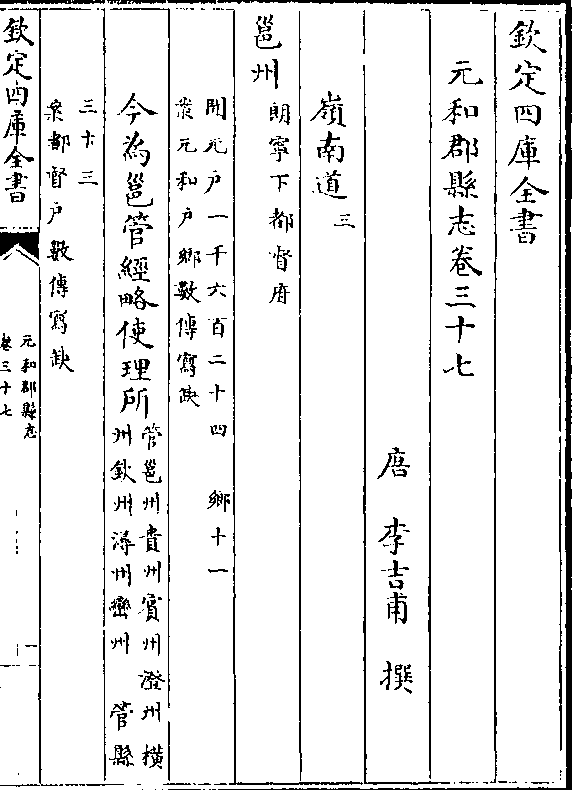 欽定四庫全書
元和郡縣志卷三十七
唐 李吉甫 撰
嶺南道三
邕州朗寧下都督府
開元戶一千六百二十四 鄉十一
案元和戶鄉數傳寫缺
今為邕管經略使理所管邕州貴州賓州澄州橫
州欽州潯州巒州 管縣
三十三
案都督戶數傳寫缺
欽定四庫全書
元和郡縣志
卷三十七
一